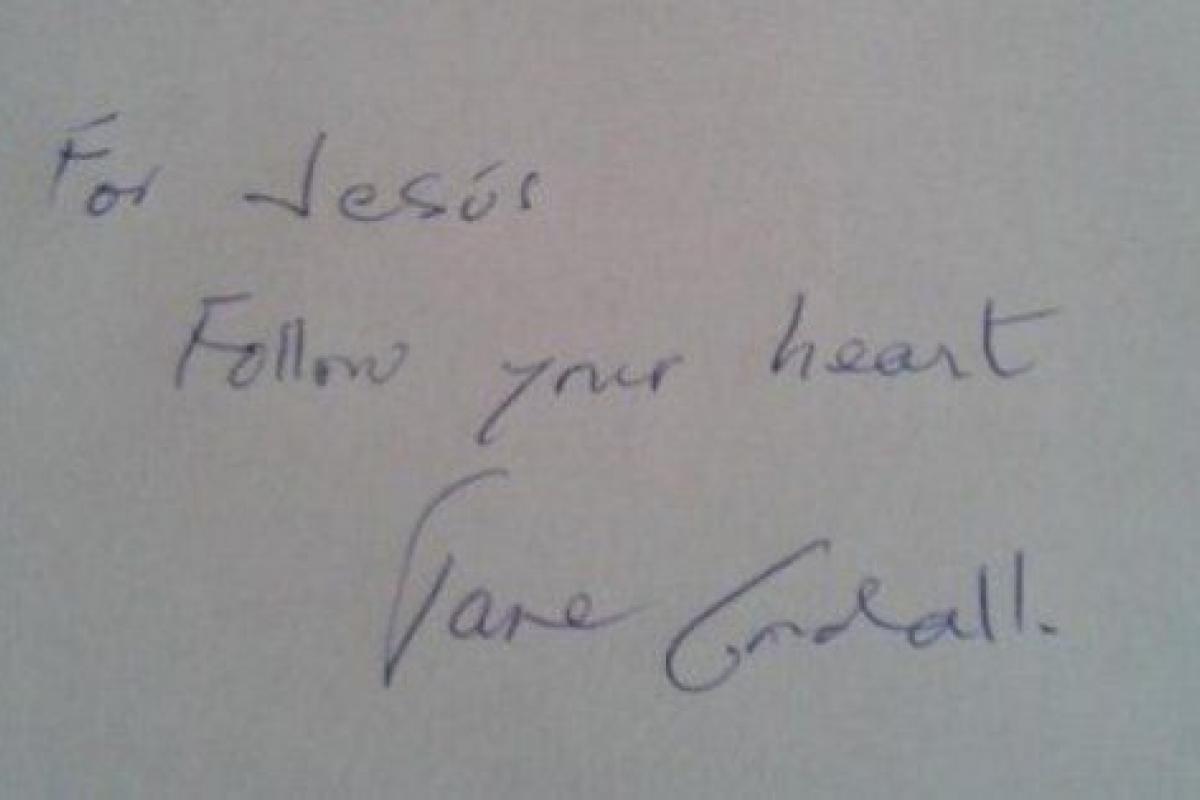 For Jesús
Follow your heart
Jane Goodall.